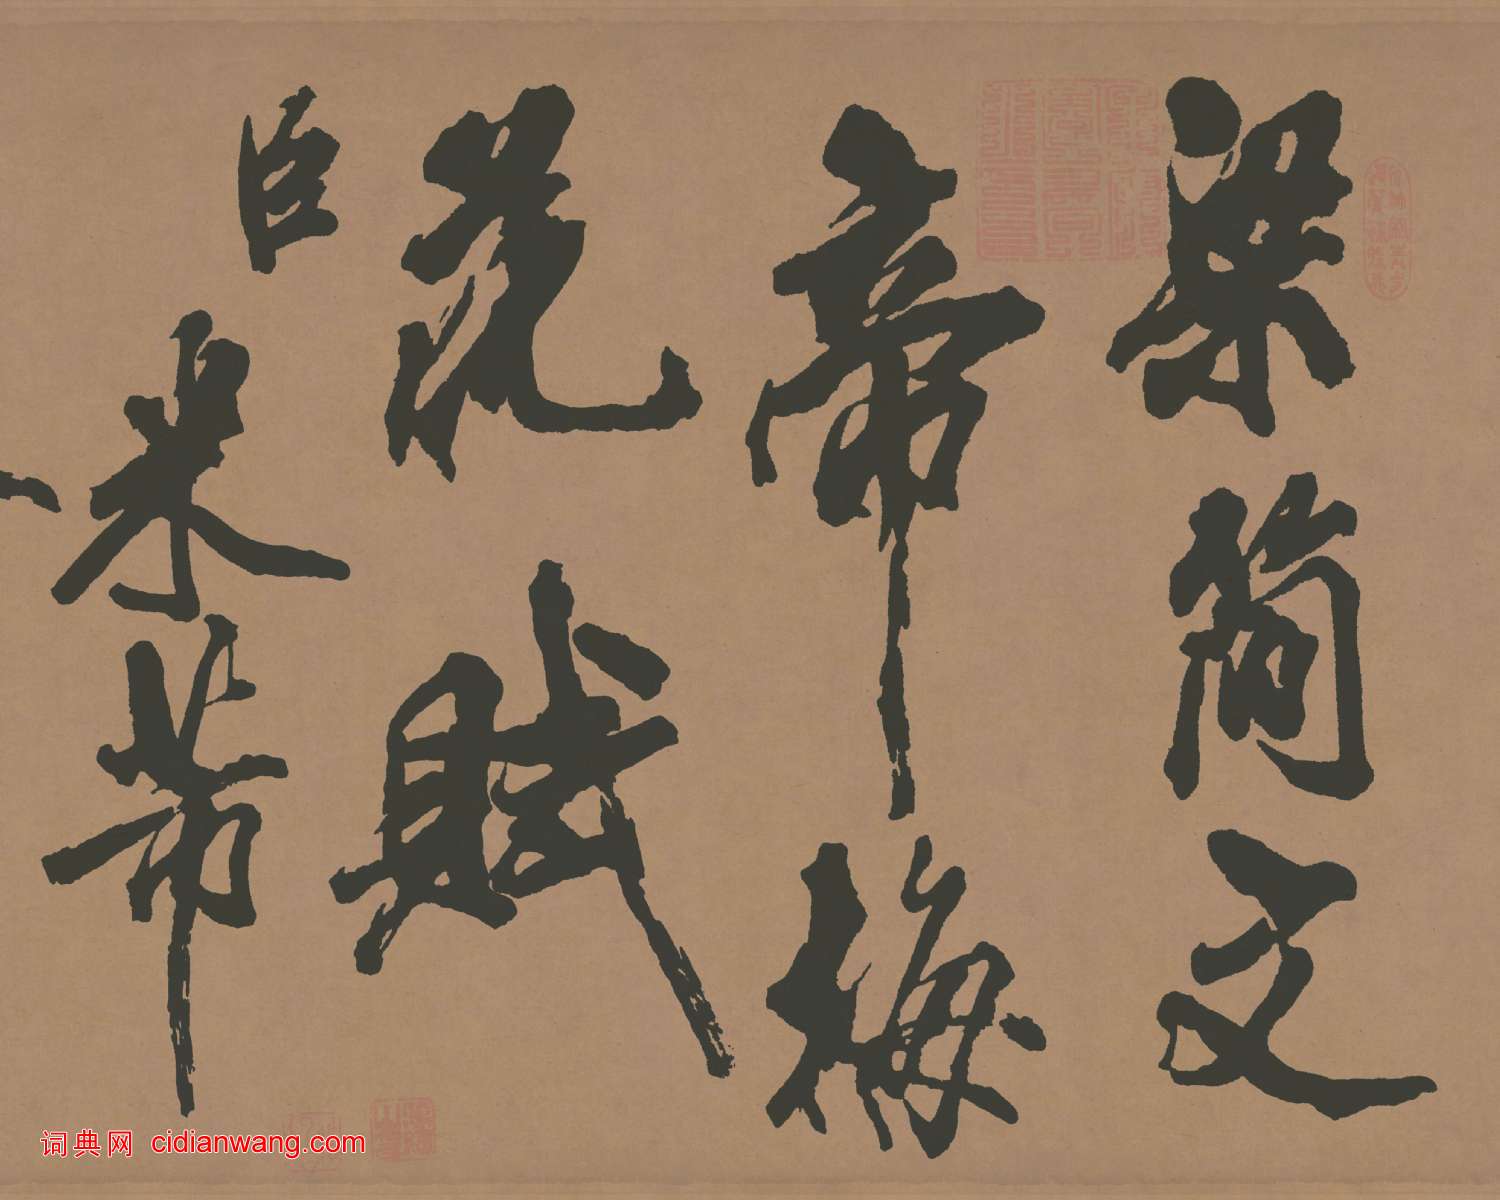 梁简文
帝梅
花赋
臣米芾
词典网 cidianwang.com